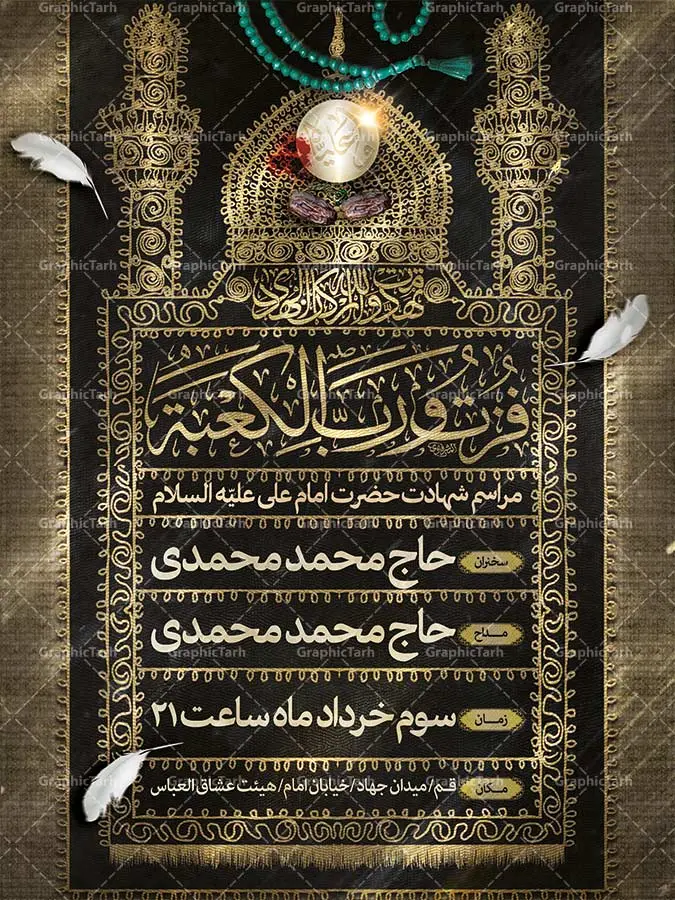 تهدمت والله ارکان الهدی
فُزتُ وَ رَبِّ الکَعبَة
مراسم شهادت حضرت امام علی علیه السلام
سخنران حاج محمد محمدی
مداح حاج محمد محمدی
زمان سوم خرداد ماه ساعت ۲۱
مکان قم/میدان جهاد/خیابان امام/هیئت عشاق العباس
GraphicTarh